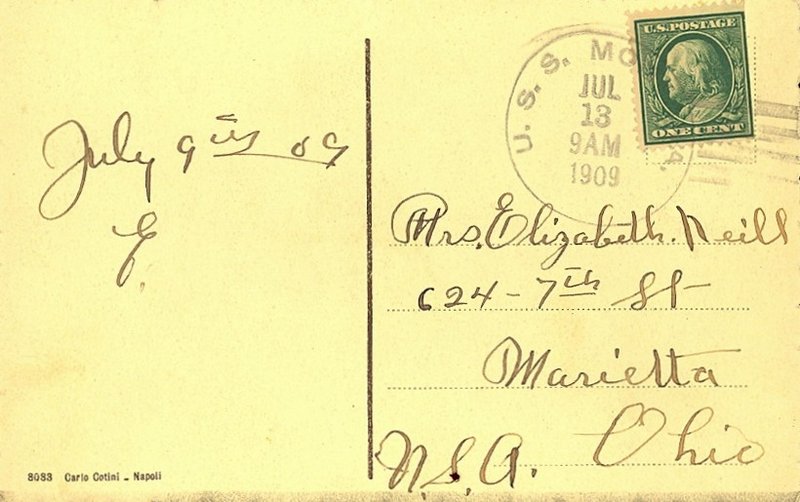 July 9th 09
E.
8083 Carlo Cotini - Napoli
U.S. POSTAGE
ONE CENT
U. S. S. MO
JUL
13
9AM
1909
A.
Mrs. Elizabeth. Neill
624 - 7th St
Marietta
Ohio
U.S.A.